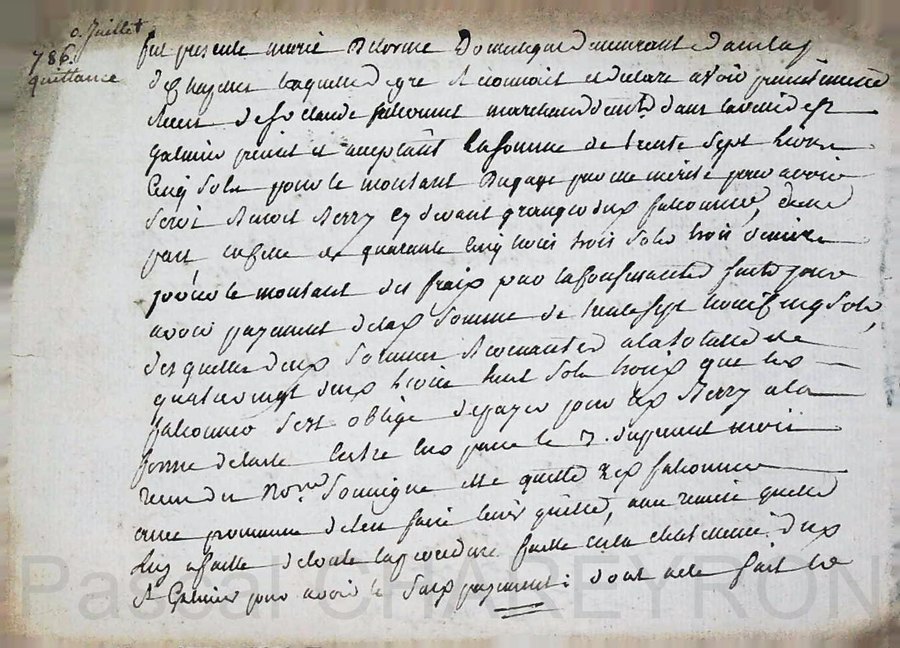 o. Juillet
786.
quittance
fut presente marie Delorme Domestique demeurant
laquelle de gré Reconnait et declare avoir
Receu de sr claude falconnet marchand dans la ville de st
galmier present et acceptant la somme de trente sept livres
Cinq Sols pour le montant Du gage par elle merité pour avoir
Servi Benoit Merry cy devant granger dudit falconnet, d'une
part celle de quarante cinq livres trois sols trois deniers
pour le montant des frais par la fait pour
avoir payement de la somme de trente sept livres cinq sols,
des quelles deux sommes Revenantes a la totale de
quatre vingt deux livres huit sols trois que led
falconnet s'est obligé de payer pour led Merry a la
forme de l'acte entre eux passé le 7. du present mois
Recu du No.re Soussigné elle quitte led falconnet
avec promesse de l'en faire tenir quitte, avec remise quelle
luy a faitte de toute la procedure faitte en la chatelenie dud
St Galmier pour avoir le susd payement: dont acte fait le
Pascal CHAREYRON